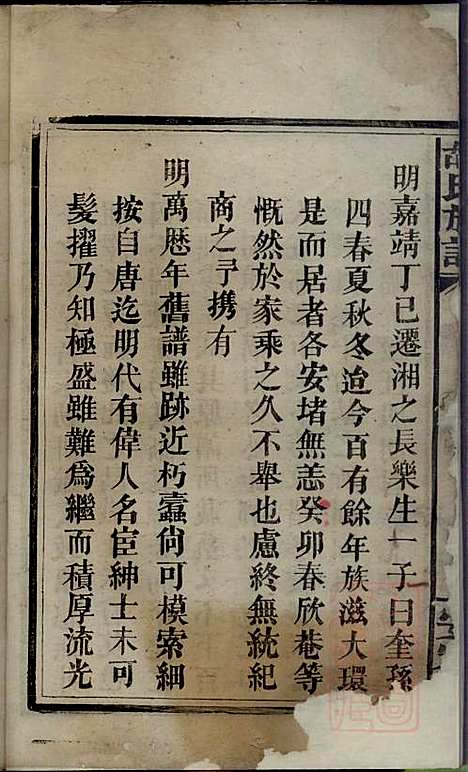 胡氏族譜
明嘉靖丁巳遷湘之長樂生一子曰奎孫
四春夏秋冬迨今百有餘年族滋大環
是而居者各安堵無恙癸卯春欣菴等
慨然於家乘之久不舉也慮終無統紀
商之予携有
明萬歷年舊譜雖跡近朽蠹尙可模索細
按自唐迄明代有偉人名臣紳士未可
髮擢乃知極盛雖難爲繼而積厚流光